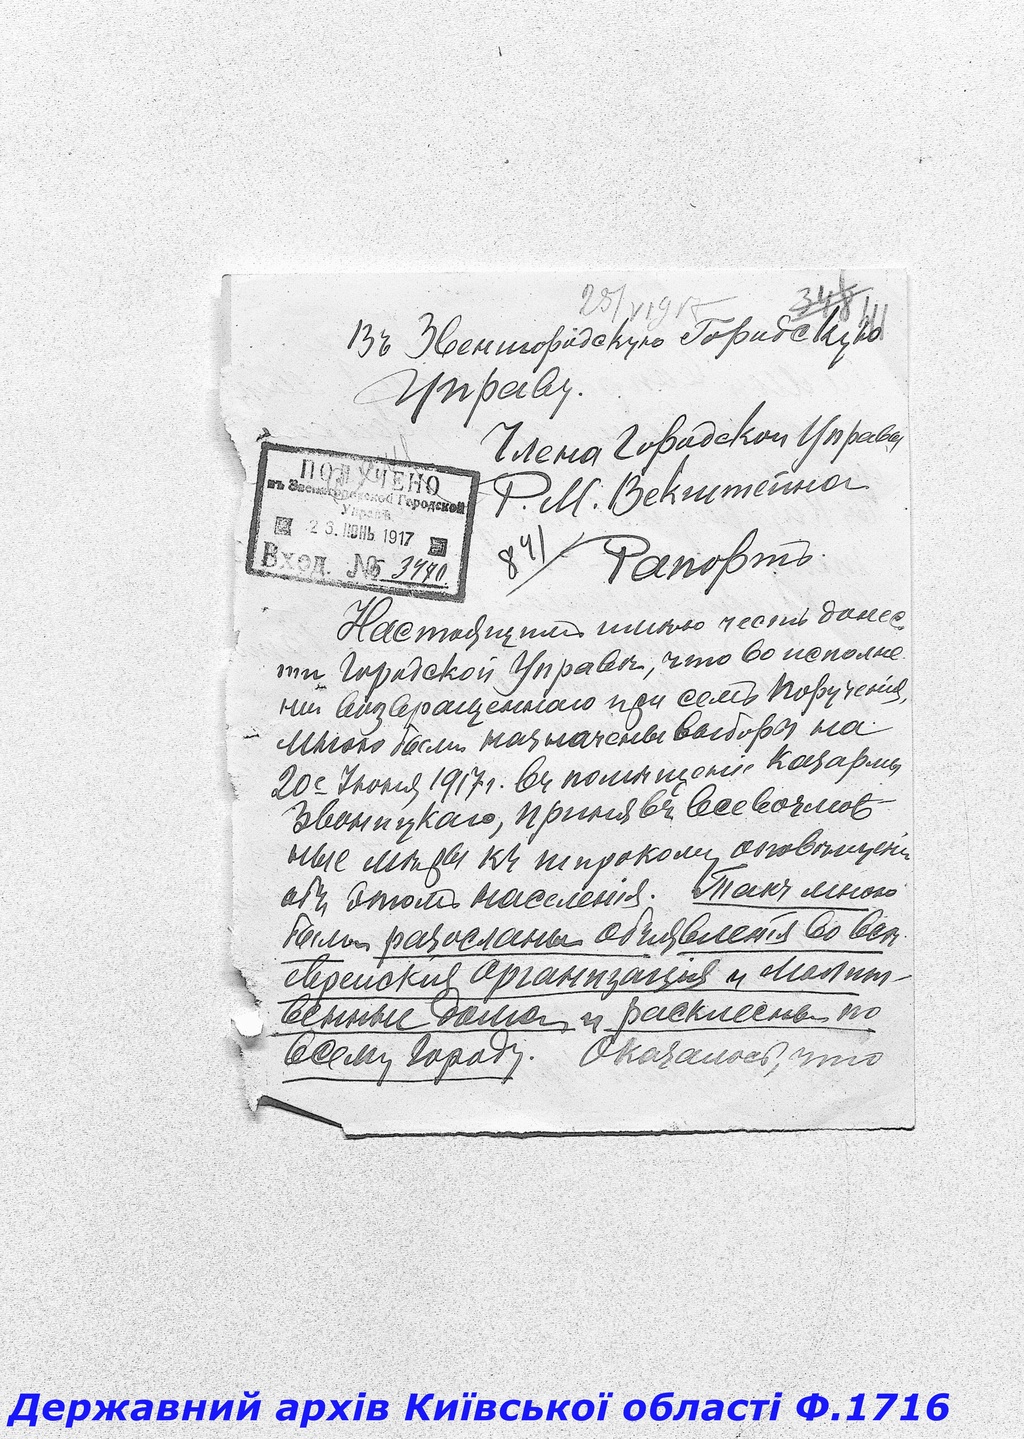 Въ Звенигородскую Городскую
Управу.
Члена Городской Управы
Р. М. Векштейна
841/
Рапортъ.
ПОЛУЧЕНО
въ Звенигородской Городской
Управѣ
23. ІЮНЬ 1917
Вход. № 3440.
Настоящимъ имѣю честь донес-
ти Городской Управѣ, что во исполне-
ніи возвращеннаго при семъ порученія,
мною были назначены выборы на
20е Іюня 1917 г. въ помѣщеніе Казармы
Звоницкаго, принявъ всевозмож-
ные мѣры къ широкому оповѣщенію
объ этомъ населенія. Такъ мною
были разосланы объявленія во всѣ
еврейскія организаціи и Молит-
венные дома и расклеены по
всему городу. Оказалось, что
Державний архів Київської області Ф.1716